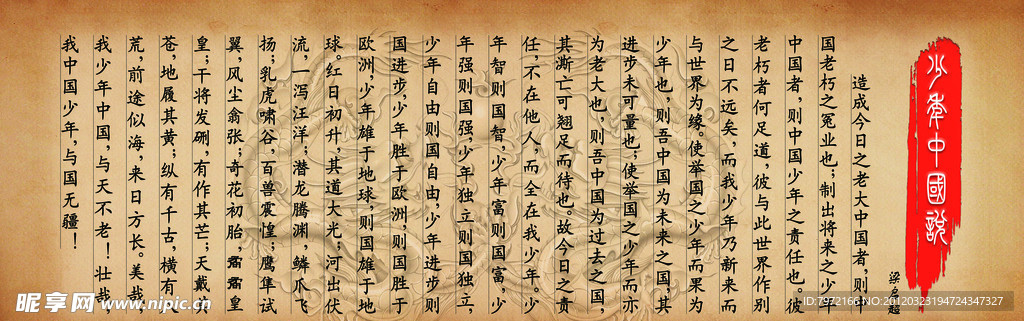 少年中國說
梁启超
造成今日之老大中国者，则中
国老朽之冤业也；制出将来之少年
中国者，则中国少年之责任也。彼
老朽者何足道，彼与此世界作别
之日不远矣，而我少年乃新来而
与世界为缘。使举国之少年而果为
少年也，则吾中国为未来之国，其
进步未可量也；使举国之少年而亦
为老大也，则吾中国为过去之国，
其澌亡可翘足而待也。故今日之责
任，不在他人，而全在我少年。少
年智则国智，少年富则国富，少
年强则国强，少年独立则国独立，
少年自由则国自由，少年进步则
国进步，少年胜于欧洲，则国胜于
欧洲，少年雄于地球，则国雄于地
球。红日初升，其道大光；河出伏
流，一泻汪洋；潜龙腾渊，鳞爪飞
扬；乳虎啸谷，百兽震惶；鹰隼试
翼，风尘翕张；奇花初胎，矞矞皇
皇；干将发硎，有作其芒；天戴其
苍，地履其黄；纵有千古，横有八
荒，前途似海，来日方长。美哉，
我少年中国，与天不老！壮哉，
我中国少年，与国无疆！
昵享网 www.nipic.cn
ID:7972166 NO:20120323194724347327